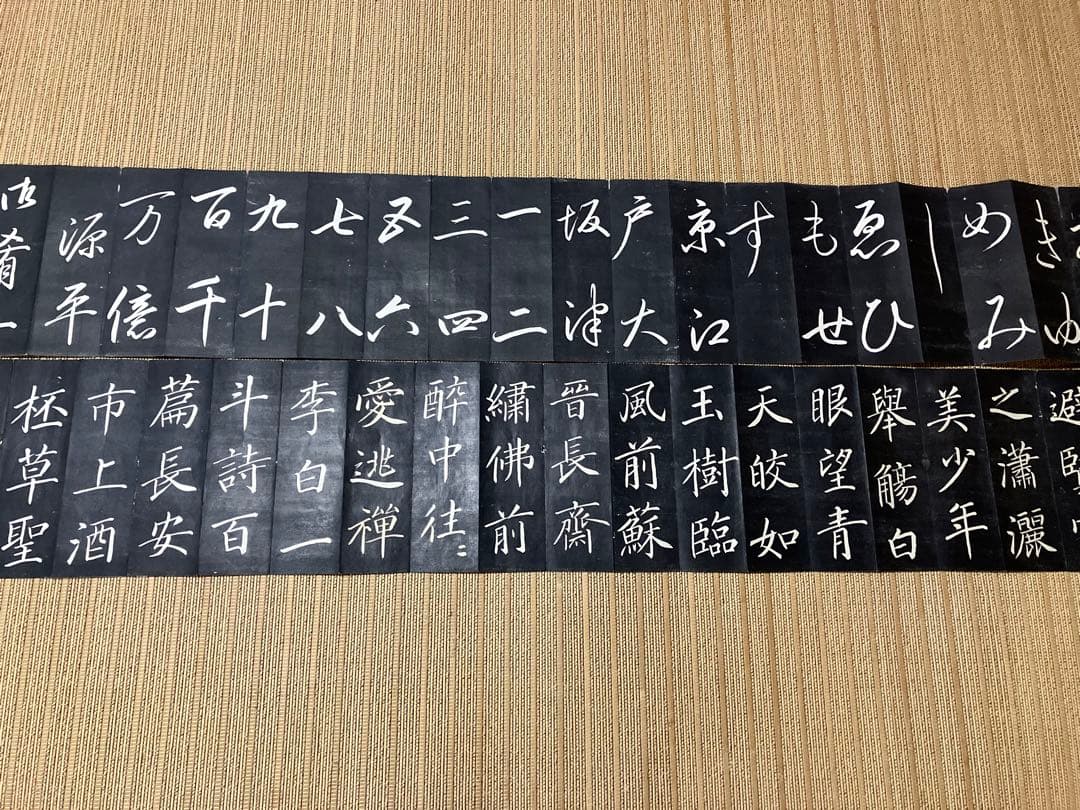 きゆ
めみ
し
ゑひ
もせ
す
京江
戸大
坂津
一二
三四
五六
七八
九十
百千
万億
源平
肴一
避
之瀟灑
美少年
舉觴白
眼望青
天皎如
玉樹臨
風前蘇
晉長齋
繡佛前
醉中往〻
愛逃禪
李白一
斗詩百
篇長安
市上酒
杯草聖